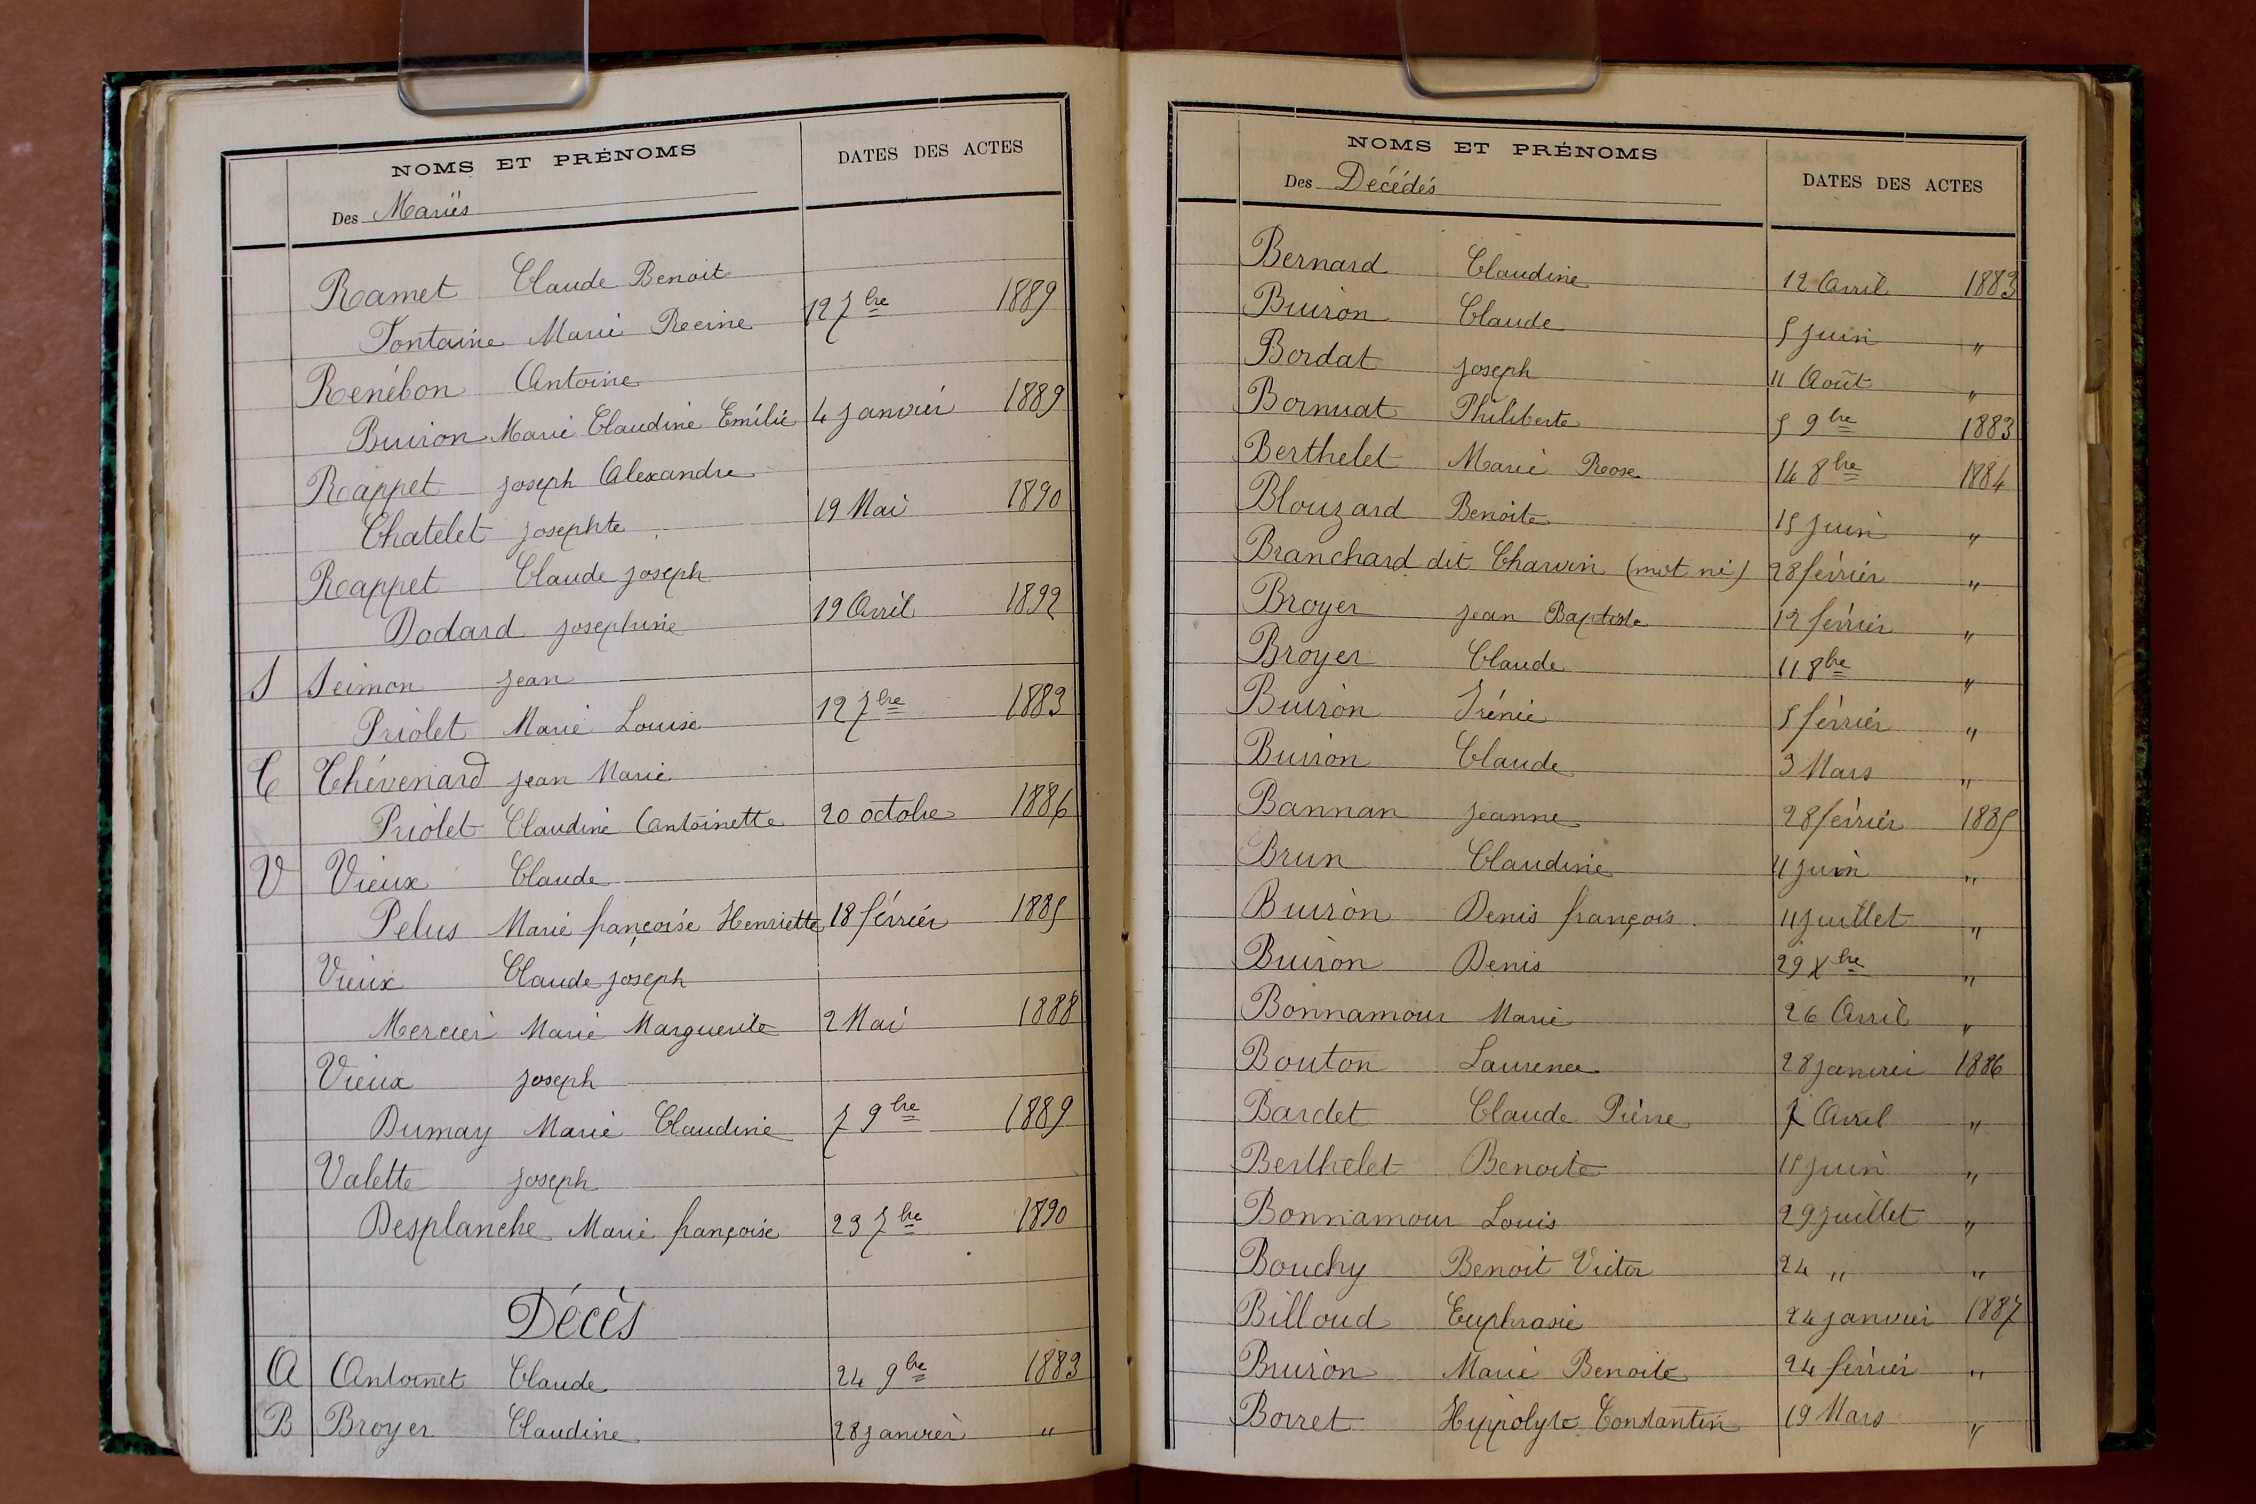 NOMS ET PRÉNOMS
Des Mariés
DATES DES ACTES
Ramet Claude Benoit
Fontaine Marie Reine 12 7bre 1889
Renébon Antoine
Buiron Marie Claudine Emilie 4 janvier 1889
Rappet joseph Alexandre
Chatelet josephte 19 Mai 1890
Rappet Claude joseph
Dodard josephine 19 Avril 1892
S Seimon jean
Priolet Marie Louise 12 7bre 1883
T Thévenard jean Marie
Priolet Claudine Antoinette 20 octobre 1886
V Vieux Claude
Pelus Marie françoise Henriette 18 février 1885
Vieux Claude joseph
Mercier Marie Marguerite 2 Mai 1888
Vieux joseph
Dumay Marie Claudine 7 9bre 1889
Valette joseph
Desplanche Marie françoise 23 7bre 1890
Décès
A Antoinet Claude 24 9bre 1883
B Broyer Claudine 28 janvier "
NOMS ET PRÉNOMS
Des Décédés
DATES DES ACTES
Bernard Claudine 12 Avril 1883
Buiron Claude 5 juin "
Bordat joseph 11 Août "
Bornuat Philiberte 5 9bre 1883
Berthelet Marie Rose 14 8bre 1884
Blouzard Benoite 15 juin "
Branchard dit Charvin (mort né) 28 février "
Broyer jean Baptiste 12 février "
Broyer Claude 11 8bre "
Buiron Irénée 5 février "
Buiron Claude 3 Mars "
Bannan jeanne 28 février 1885
Brun Claudine 11 juin "
Buiron Denis françois 11 juillet "
Buiron Denis 29 Xbre "
Bonnamour Marie 26 Avril "
Bouton Laurence 28 janvier 1886
Bardet Claude Pierre Avril "
Berthelet Benoite 15 juin "
Bonnamour Louis 29 juillet "
Bouchy Benoit Victor 24 " "
Billoud Euphrasie 24 janvier 1887
Buiron Marie Benoite 24 février "
Borret Hyppolyte Constantin 19 Mars "